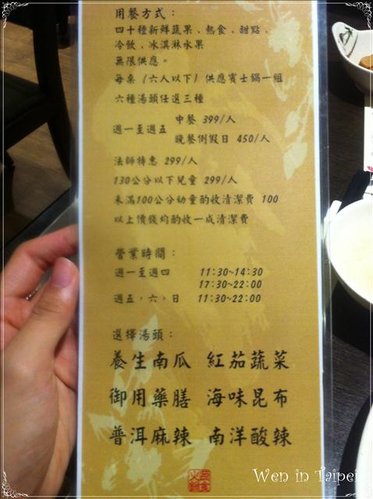 用餐方式：
四十種新鮮蔬果、熱食、甜點、
冷飲、冰淇淋水果
無限供應。
每桌（六人以下）供應賓士鍋一組
六種湯頭任選三種
中餐 399/人
週一至週五
晚餐例假日 450/人
法師特惠 299/人
130公分以下兒童 299/人
未滿100公分幼童酌收清潔費 100
以上價錢均酌收一成清潔費
營業時間：
週一至週四 11:30~14:30
17:30~22:00
週五,六,日 11:30~22:00
選擇湯頭：
養生南瓜 紅茄蔬菜
御用藥膳 海味昆布
普洱麻辣 南洋酸辣
Wen in Taipei